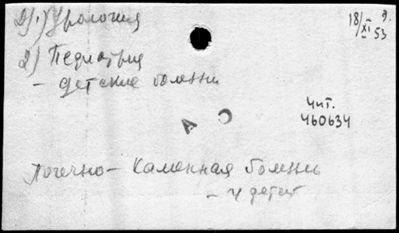 1) Урология
18/XI 53 г.
2) Педиатрия
- детские болезни
Чит.
460634
А С
Почечно-Каменная болезнь
- у детей